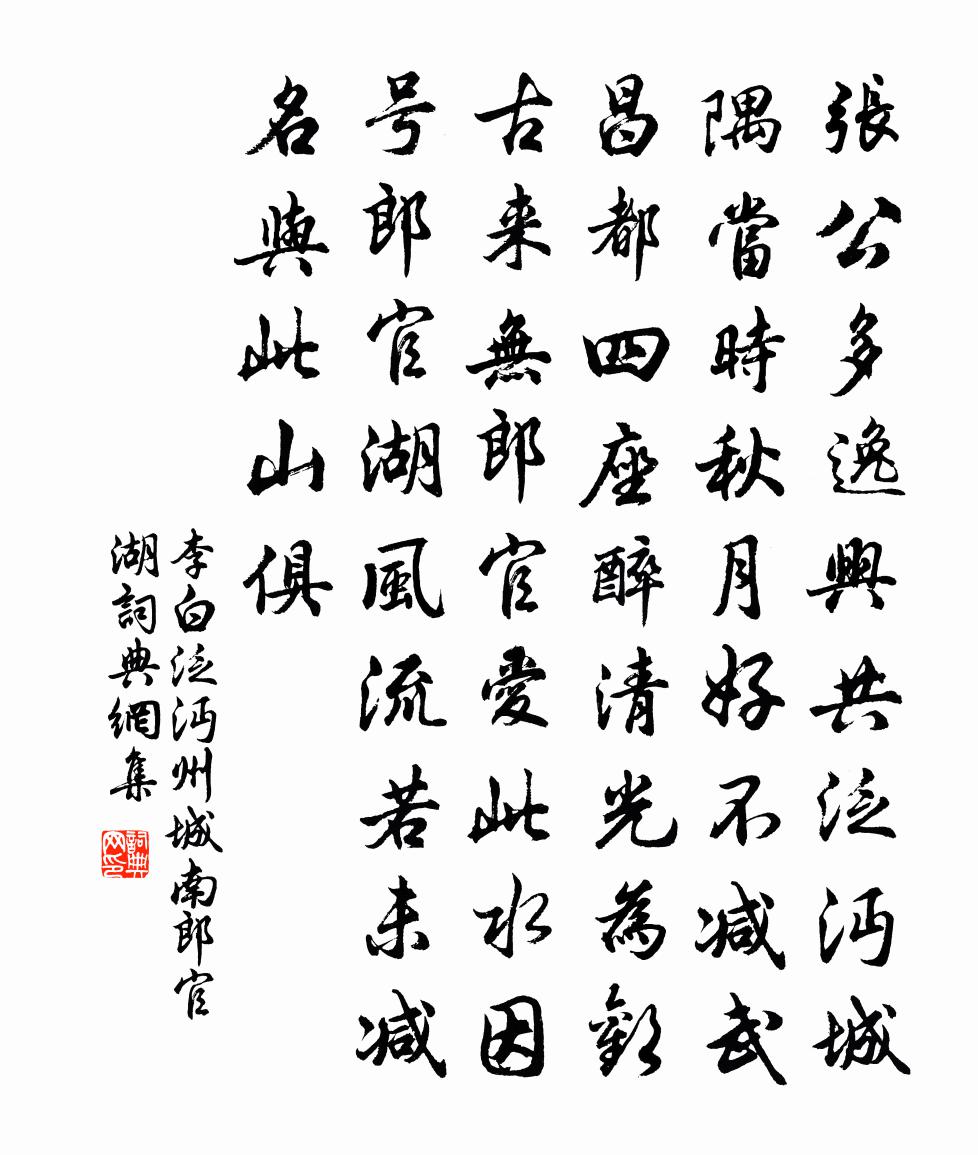 張公多逸興共泛沔城
隅當時秋月好不減武
昌都四座醉清光為歡
古来無郎官愛此水因
号郎官湖風流若未減
名與此山俱
李白泛沔州城南郎官
湖詞典網集
詞典网印